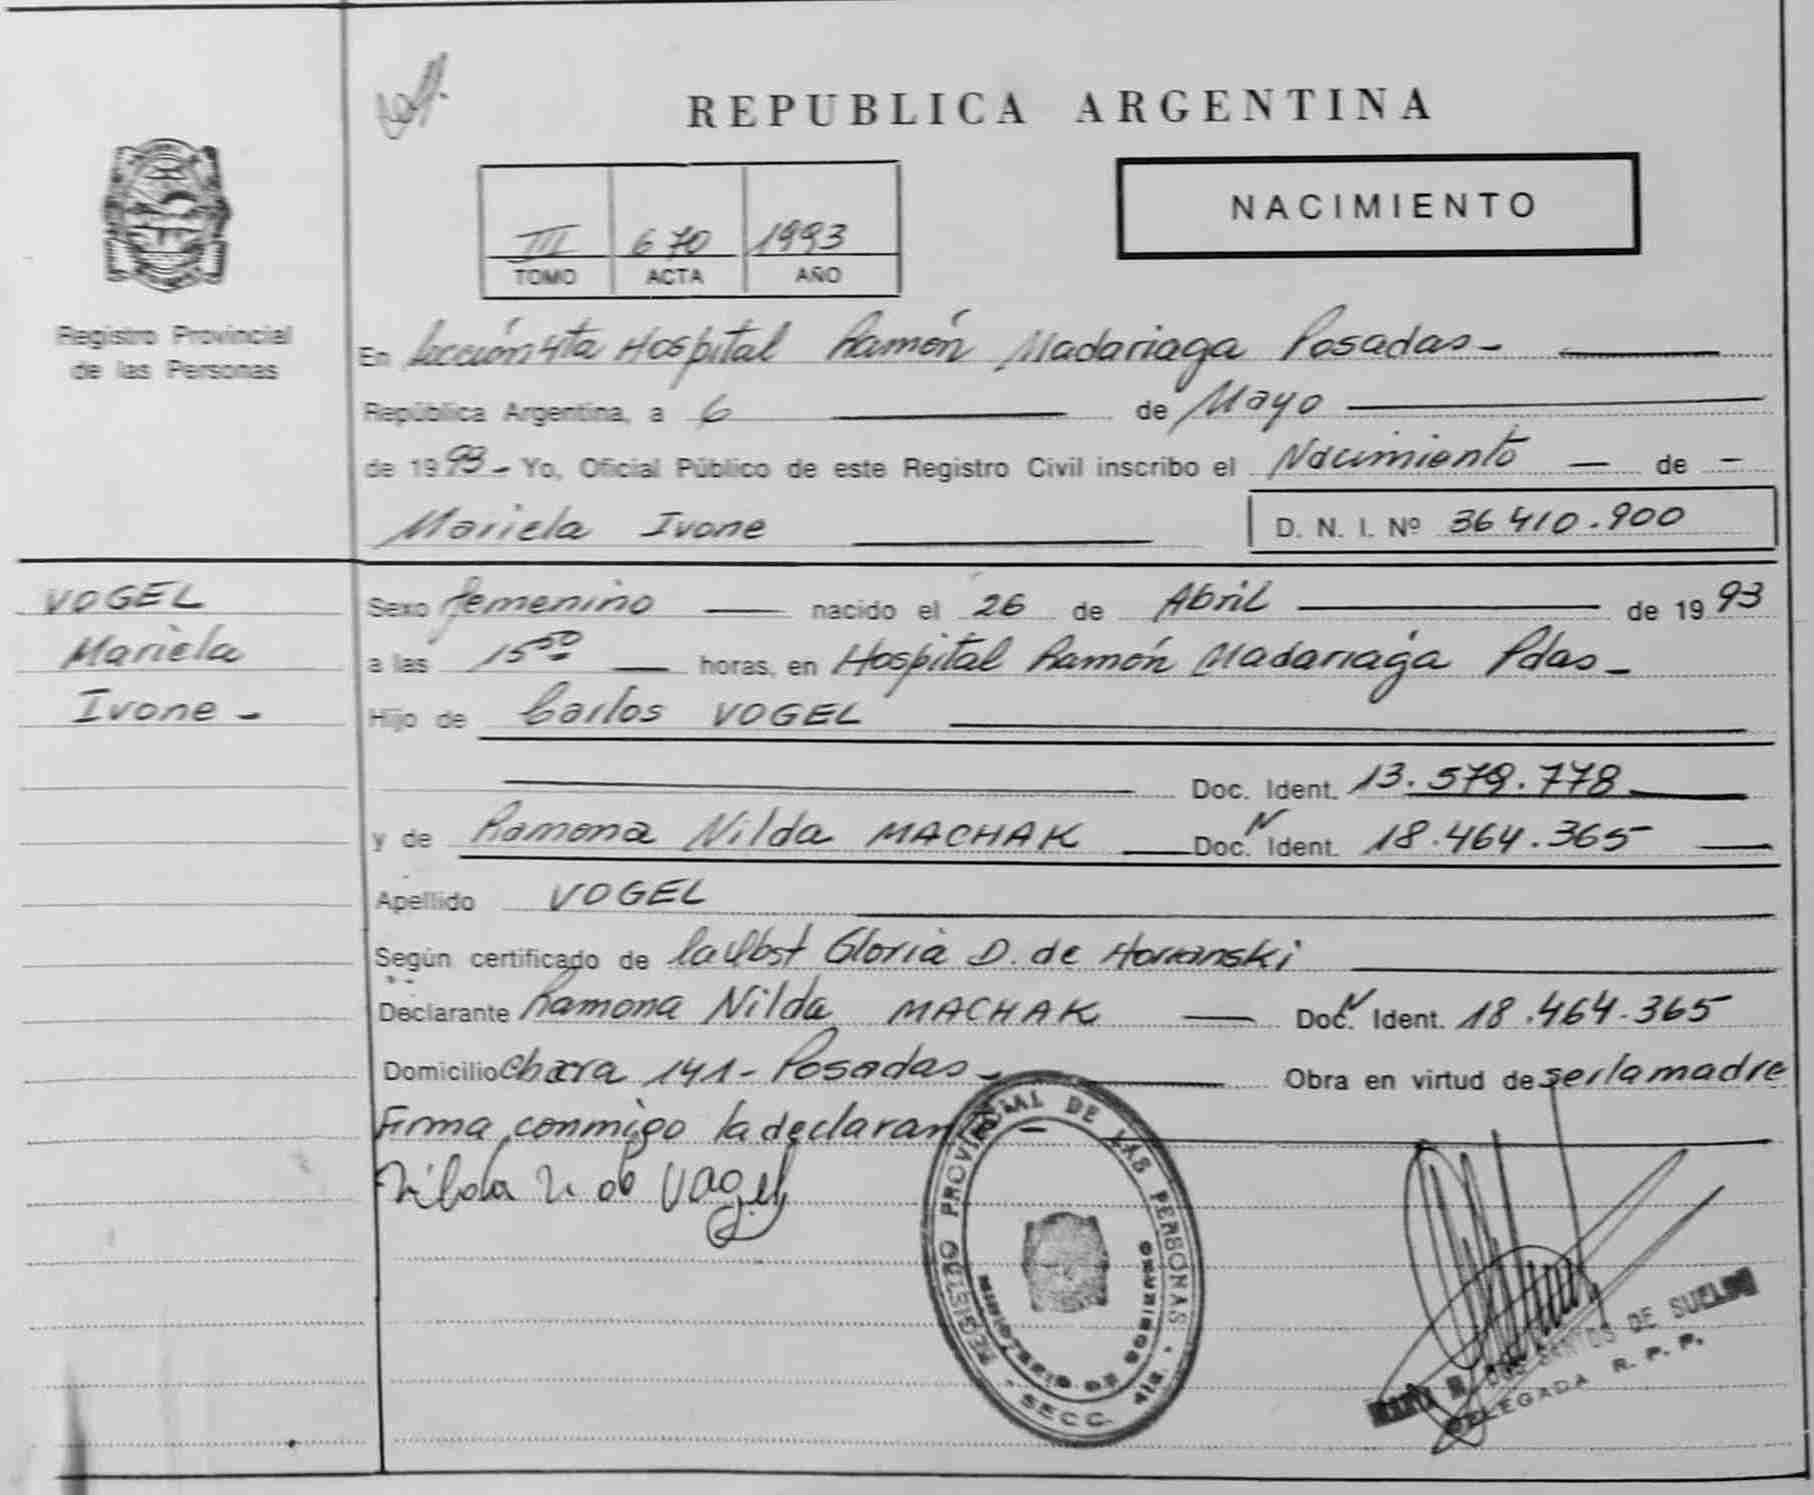 REPUBLICA ARGENTINA
NACIMIENTO
III 670 1993
TOMO ACTA AÑO
Registro Provincial
de las Personas
En Sección 4ta Hospital Ramón Madariaga Posadas -
República Argentina, a 6 de Mayo
de 1993 - Yo, Oficial Público de este Registro Civil inscribo el Nacimiento — de -
Mariela Ivone
D. N. I. Nº 36410.900
VOGEL
Mariela
Ivone -
Sexo femenino nacido el 26 de Abril de 1993
a las 15 50 horas, en Hospital Ramón Madariaga Pdas -
Hijo de Carlos VOGEL
Doc. Ident. 13.579.778
y de Ramona Nilda MACHAK Doc. Ident. 18.464.365
Apellido VOGEL
Según certificado de la Obst Gloria D. de
Declarante Ramona Nilda MACHAK Doc. Ident. 18.464.365
Domicilio Chacra 141 - Posadas - Obra en virtud de ser la madre
Firma conmigo la declarante -
Nilda de Vogel
REGISTRO PROVINCIAL DE LAS PERSONAS
MINISTERIO DE GOBIERNO
SECC. 4ta.
DOS SANTOS DE SUELDO
DELEGADA R. P. P.